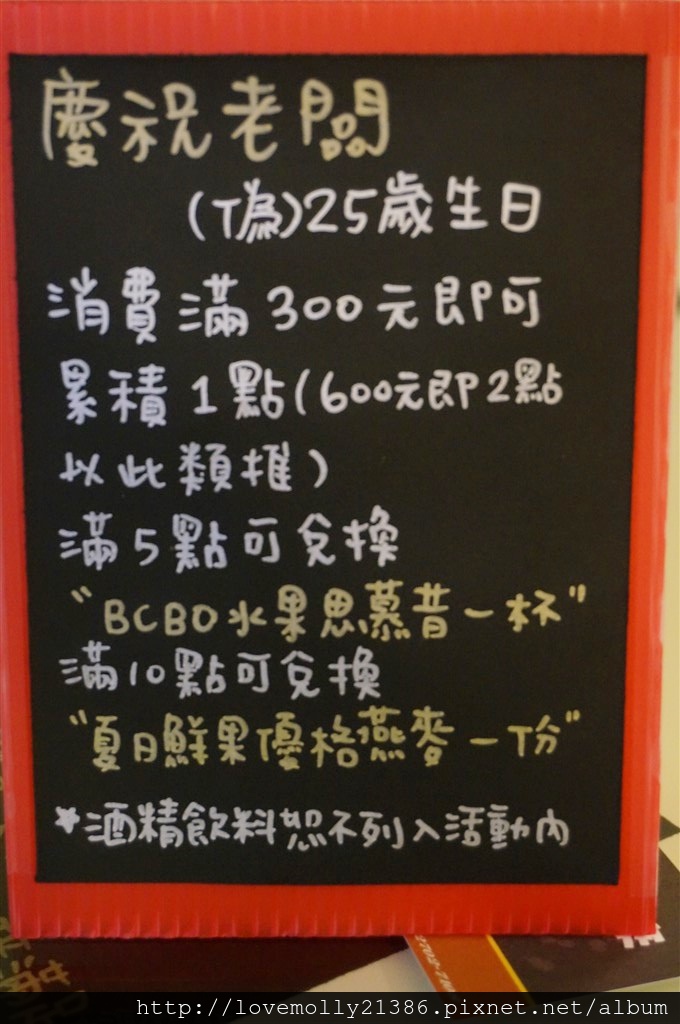 慶祝老闆
(偽)25歲生日
消費滿300元即可
累積1點(600元即2點
以此類推)
滿5點可兌換
"BCBO水果思慕昔一杯"
滿10點可兌換
"夏日鮮果優格燕麥一份"
*酒精飲料恕不列入活動內
http://lovemolly21386.pixnet.net/album